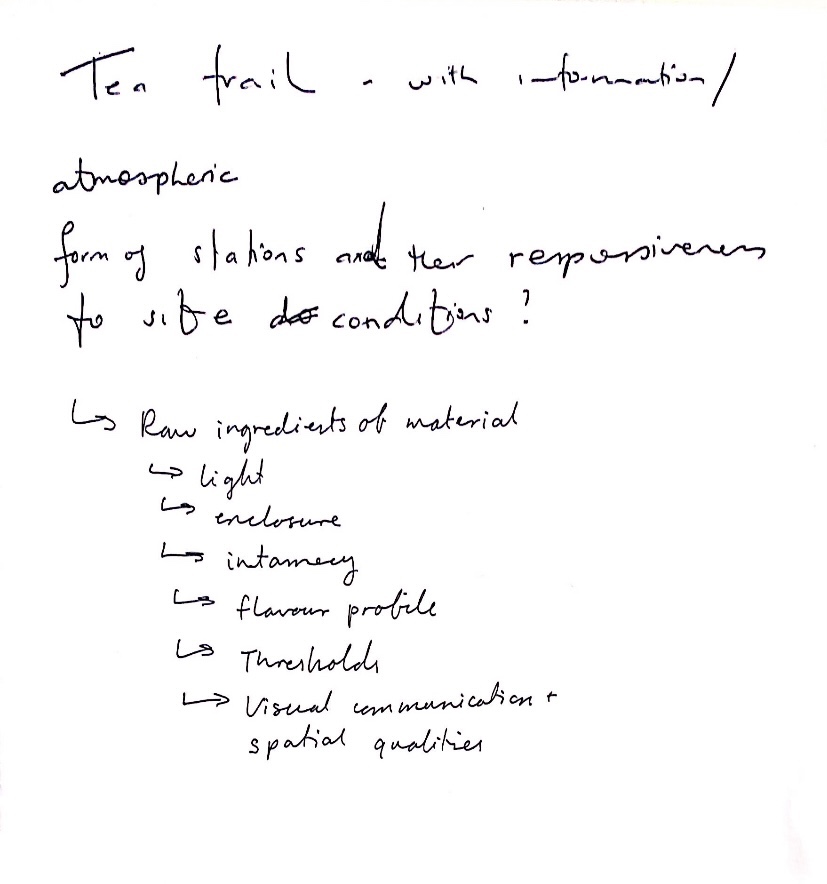 Tea trail - with information/
atmospheric
form of stations and their responsiveness
to site conditions?
↳ Raw ingredients of material
↳ light
↳ enclosure
↳ intamecy
↳ flavour profile
↳ Thresholds
↳ Visual communication +
spatial qualities